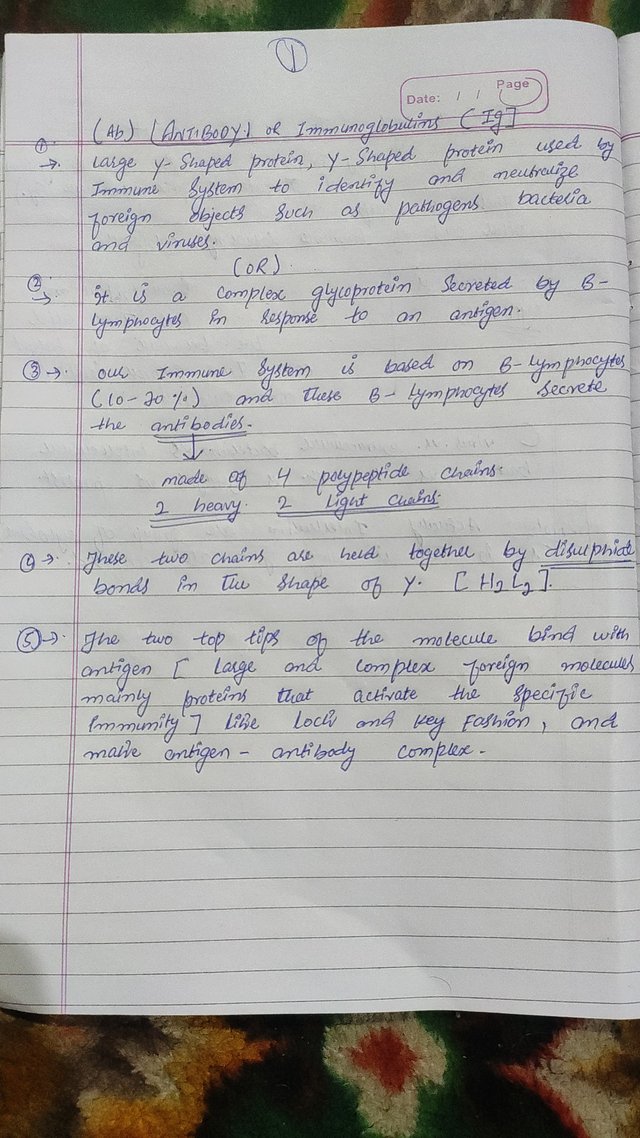 1
Page
Date: / /
(Ab) (ANTIBODY) OR Immunoglobulins (Ig]
① → Large Y-Shaped protein, Y-Shaped protein used by
Immune System to identify and neutralize
foreign objects such as pathogens bacteria
and viruses.
(OR).
② → it is a complex glycoprotein Secreted by B-
lymphocytes in response to an antigen.
③ → our Immune System is based on B-lymphocytes
(10-20%) and these B-lymphocytes secrete
the antibodies.
made of 4 polypeptide chains.
2 heavy 2 Light chains.
④ → These two chains are held together by disulphide
bonds in the shape of Y. [H2L2].
⑤ → The two top tips of the molecule bind with
antigen [Large and complex foreign molecules
mainly proteins that activate the specific
Immunity] like lock and key Fashion, and
make antigen - antibody complex.